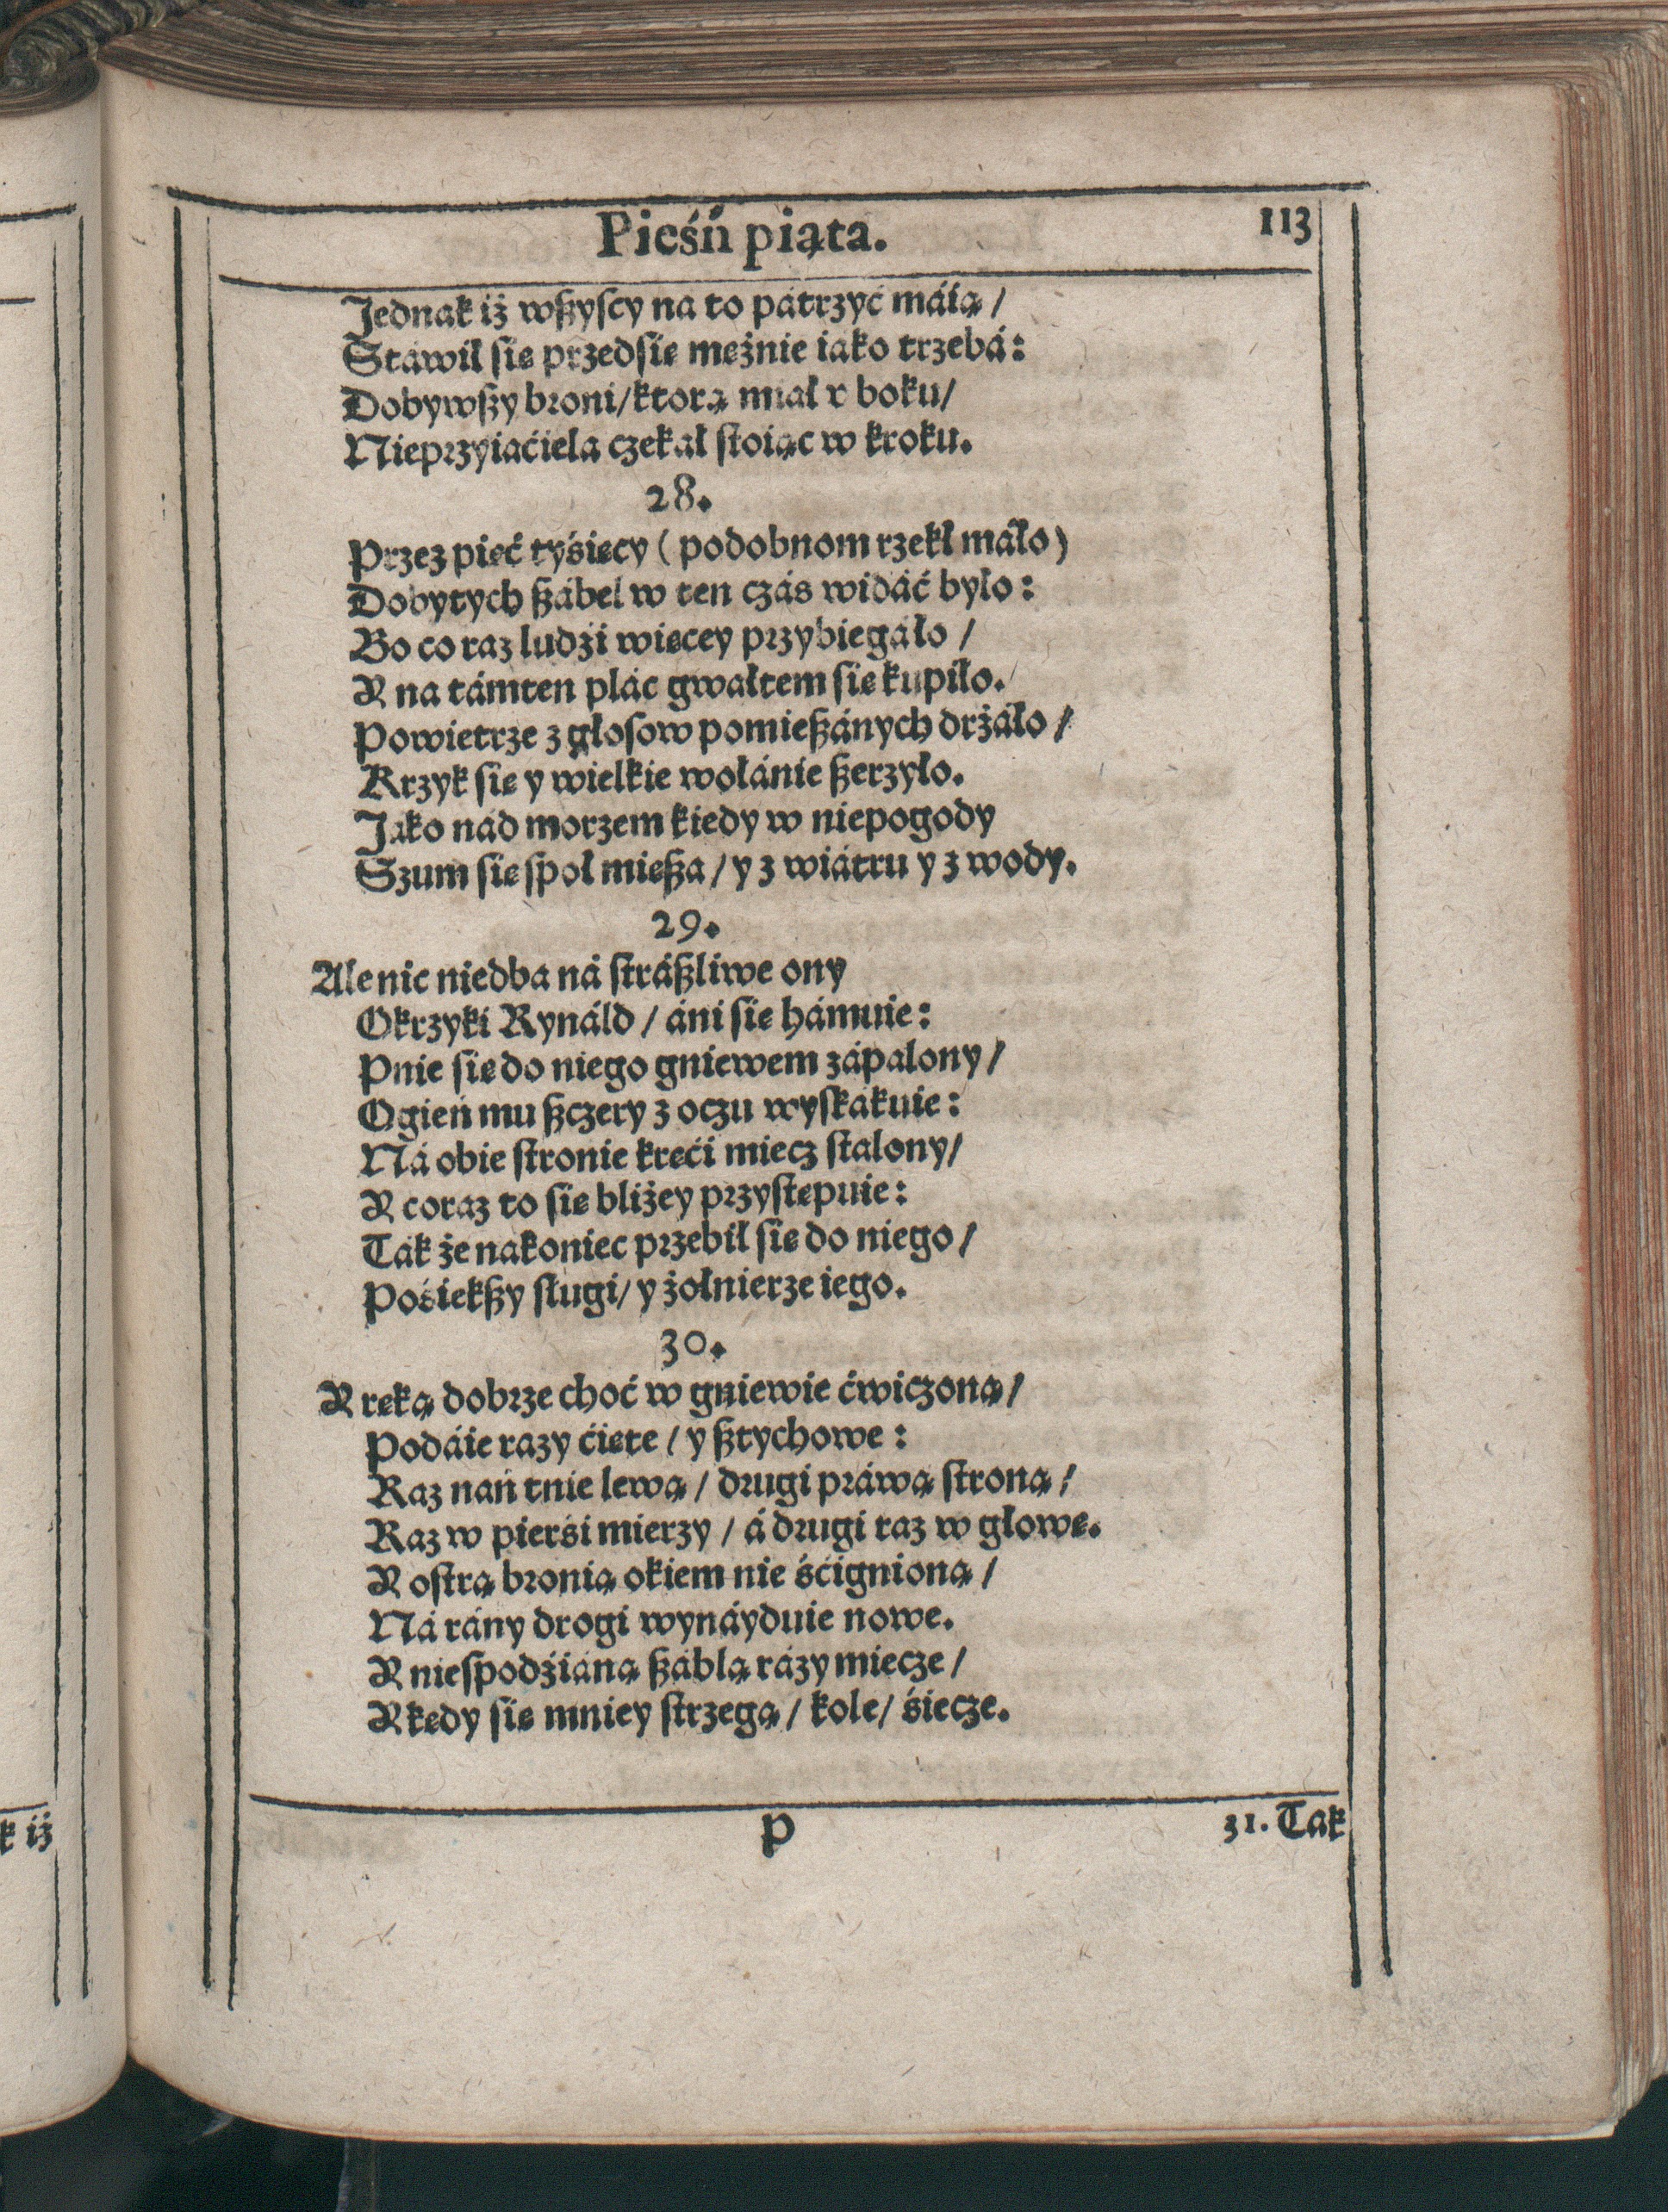 Pieśń piąta.
113
Jednák iż wßyſcy na to pátrzyć máią /
Stáwił się przedsię mężnie iáko trzebá:
Dobywßy broni/ktorą miał v boku/
Nieprzyiaćiela czekał ſtoiąc w kroku.
28.
Przez pięć tyśięcy ( podobnom rzekł máło)
Dobytych ßábel w ten czás widáć było:
Bo co raz ludźi więcey przybiegáło /
A na támten plác gwałtem się kupiło.
Powietrze z głoſow pomießánych drżáło /
Krzyk się y wielkie wołánie ßerzyło.
Jáko nád morzem kiedy w niepogody
Szum się ſpoł mießa / y z wiátru y z wody.
29.
Ale nic niedba ná ſtráßliwe ony
Okrzyki Rynáld / áni się hámuie:
Pnie się do niego gniewem zápalony /
Ogień mu ßczery z oczu wyſkákuie:
Ná obie ſtronie kręći miecz ſtalony/
A coraz to się bliżey przyſtępuie:
Ták że nakoniec przebił się do niego /
Pośiekßy ſługi/ y żołnierze iego.
30.
A ręką dobrze choć w gniewie ćwiczoną /
Podáie razy ćięte / y ßtychowe :
Raz nań tnie lewą / drugi práwą ſtroną /
Raz w pierśi mierzy / á drugi raz w głowę.
A oſtrą bronią okiem nie śćignioną /
Ná rány drogi wynáyduie nowe.
A nieſpodźiáną ßáblą rázy miecze /
A kędy się mniey ſtrzegą / kole/ śiecze.
P
31. Tak
k iż